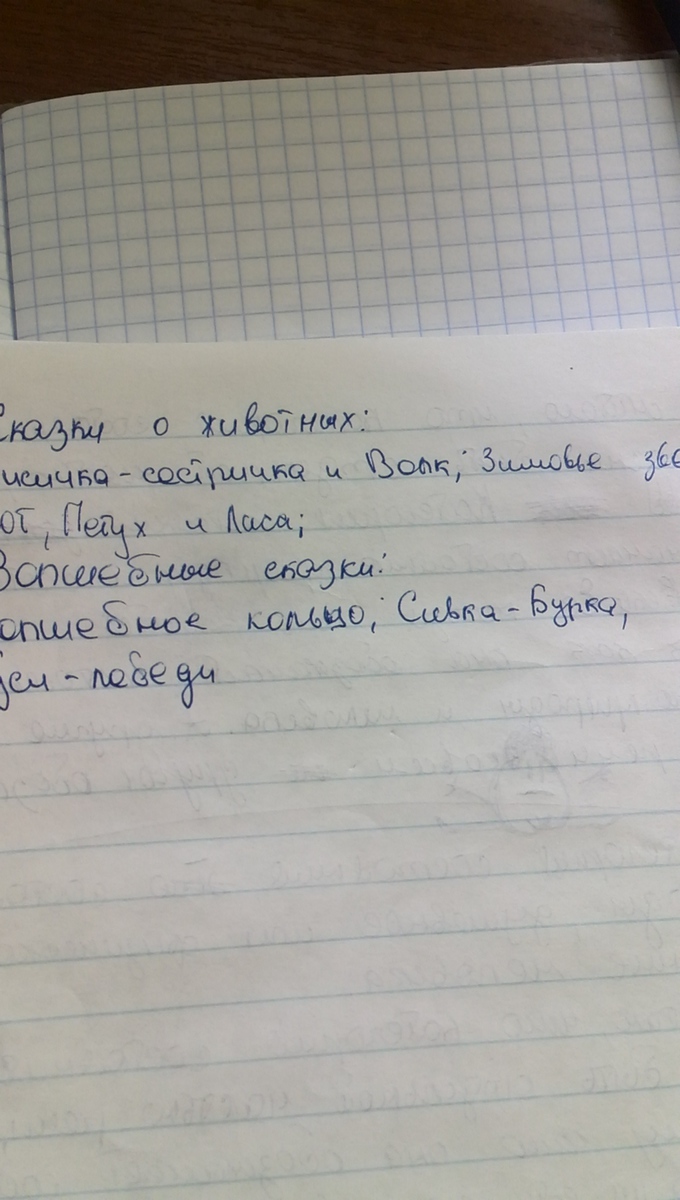 Сказки о животных:
исичка-сестричка и Волк; Зимовье зве
от, Петух и Лиса;
Волшебные сказки:
олшебное кольцо; Сивка-Бурка,
уси-лебеди